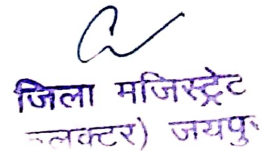 जिला मजिस्ट्रेट
लक्टर) जयपु